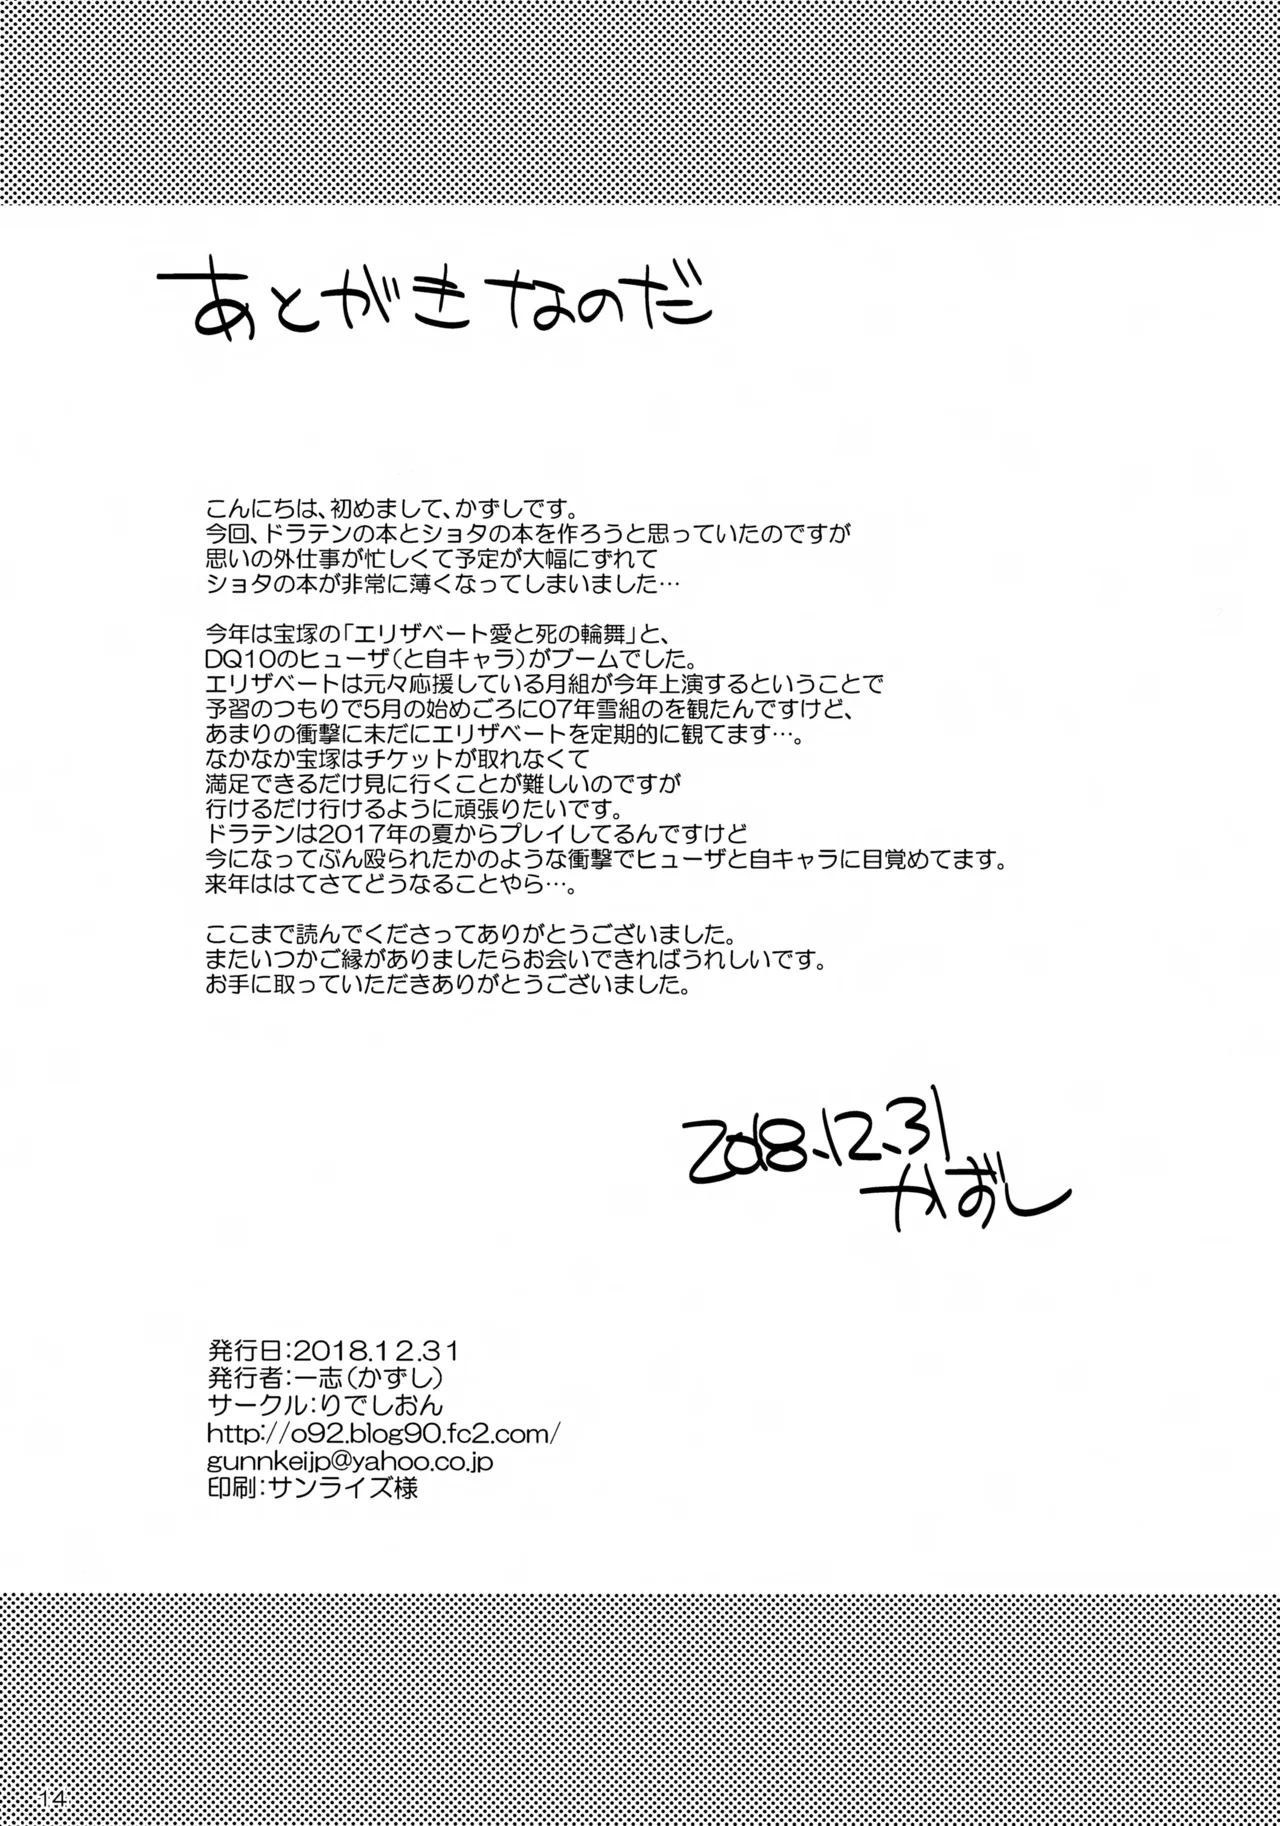 あとがきなのだ
こんにちは、初めまして、かずしです。
今回、ドラテンの本とショタの本を作ろうと思っていたのですが
思いの外仕事が忙しくて予定が大幅にずれて
ショタの本が非常に薄くなってしまいました…
今年は宝塚の「エリザベート愛と死の輪舞」と、
DQ10のヒューザ(と自キャラ)がブームでした。
エリザベートは元々応援している月組が今年上演するということで
予習のつもりで5月の始めごろに07年雪組のを観たんですけど、
あまりの衝撃に未だにエリザベートを定期的に観てます…。
なかなか宝塚はチケットが取れなくて
満足できるだけ見に行くことが難しいのですが
行けるだけ行けるように頑張りたいです。
ドラテンは2017年の夏からプレイしてるんですけど
今になってぶん殴られたかのような衝撃でヒューザと自キャラに目覚めてます。
来年ははてさてどうなることやら…。
ここまで読んでくださってありがとうございました。
またいつかご縁がありましたらお会いできればうれしいです。
お手に取っていただきありがとうございました。
2018.12.31
かずし
発行日:2018.12.31
発行者:一志(かずし)
サークル:りでしおん
http://o92.blog90.fc2.com/
gunnkeijp@yahoo.co.jp
印刷:サンライズ様
14